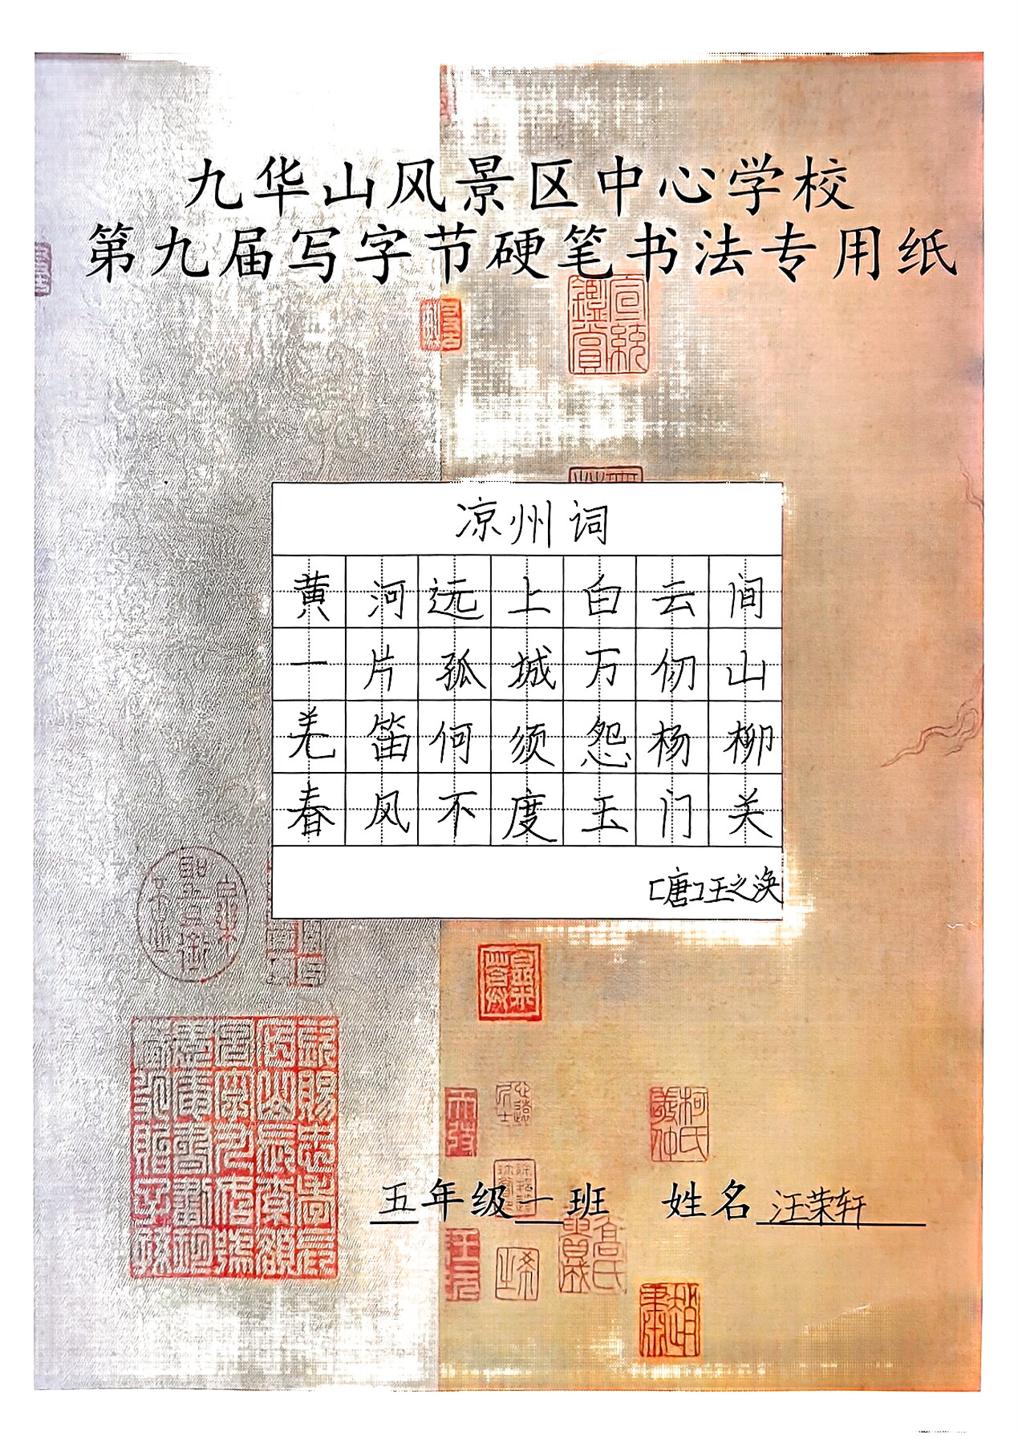 九华山风景区中心学校
第九届写字节硬笔书法专用纸
宣统
鑑賞
凉州词
黄河远上白云间
一片孤城万仞山
羌笛何须怨杨柳
春风不度玉门关
[唐]王之涣
柯氏
五年级一班 姓名 汪荣轩